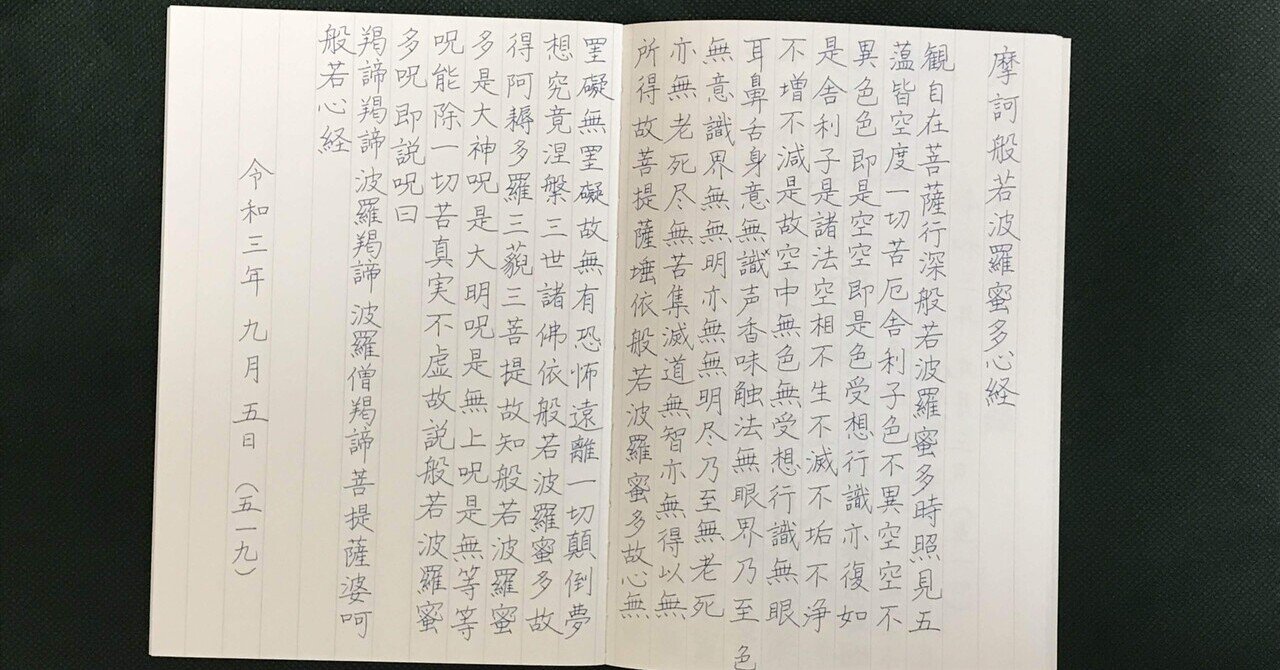 摩訶般若波羅蜜多心経
観自在菩薩行深般若波羅蜜多時照見五
蘊皆空度一切苦厄舎利子色不異空空不
異色色即是空空即是色受想行識亦復如
是舎利子是諸法空相不生不滅不垢不浄
不増不減是故空中無色無受想行識無眼
耳鼻舌身意無識×声香味触法無眼界乃至
色
無意識界無無明亦無無明尽乃至無老死
亦無老死尽無苦集滅道無智亦無得以無
所得故菩提薩埵依般若波羅蜜多故心無
罣礙無罣礙故無有恐怖遠離一切顛倒夢
想究竟涅槃三世諸佛依般若波羅蜜多故
得阿耨多羅三藐三菩提故知般若波羅蜜
多是大神呪是大明呪是無上呪是無等等
呪能除一切苦真実不虚故説般若波羅蜜
多呪即説呪曰
羯諦羯諦 波羅羯諦 波羅僧羯諦 菩提薩婆呵
般若心経
令和三年 九月 五日(五一九)